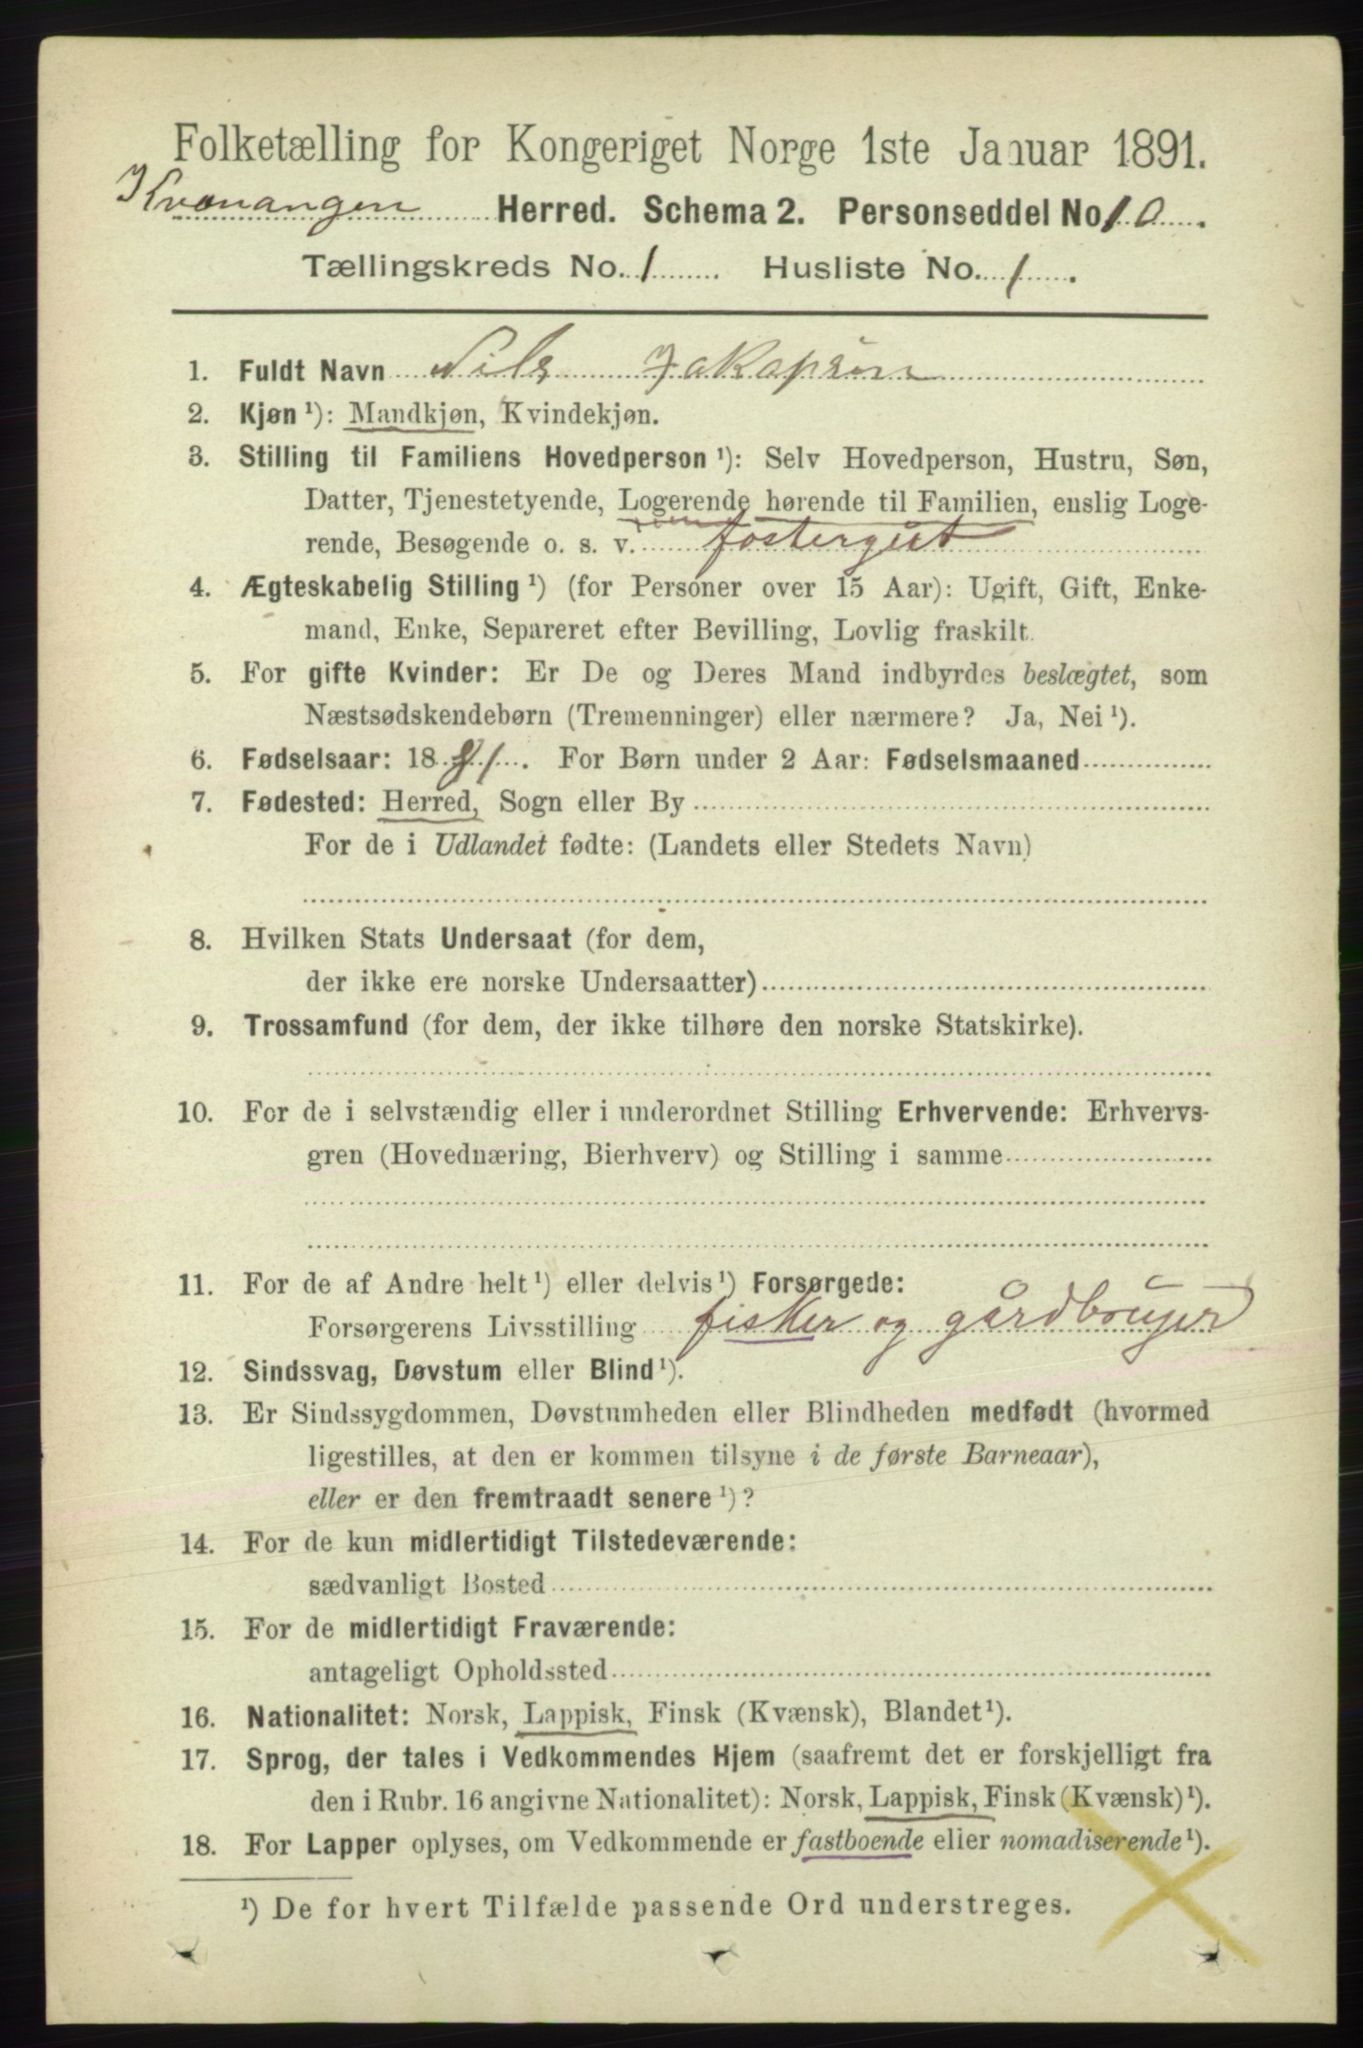 Folketælling for Kongeriget Norge 1ste Januar 1891.
Kvænangen Herred. Schema 2. Personseddel No. 10.
Tællingskreds No. 1 Husliste No. 1.
1. Fuldt Navn Nils Jakopsen
2. Kjøn ¹): Mandkjøn, Kvindekjøn.
3. Stilling til Familiens Hovedperson ¹): Selv Hovedperson, Hustru, Søn,
Datter, Tjenestetyende, Logerende hørende til Familien, enslig Loge-
rende, Besøgende o. s. v. som fostergut
4. Ægteskabelig Stilling ¹) (for Personer over 15 Aar): Ugift, Gift, Enke-
mand, Enke, Separeret efter Bevilling, Lovlig fraskilt.
5. For gifte Kvinder: Er De og Deres Mand indbyrdes beslægtet, som
Næstsødskendebørn (Tremenninger) eller nærmere? Ja, Nei ¹).
6. Fødselsaar: 1881. For Børn under 2 Aar: Fødselsmaaned
7. Fødested: Herred, Sogn eller By
For de i Udlandet fødte: (Landets eller Stedets Navn)
8. Hvilken Stats Undersaat (for dem,
der ikke ere norske Undersaatter)
9. Trossamfund (for dem, der ikke tilhøre den norske Statskirke).
10. For de i selvstændig eller i underordnet Stilling Erhvervende: Erhvervs-
gren (Hovednæring, Bierhverv) og Stilling i samme
11. For de af Andre helt ¹) eller delvis ¹) Forsørgede:
Forsørgerens Livsstilling fisker og gårdbruger
12. Sindssvag, Døvstum eller Blind ¹).
13. Er Sindssygdommen, Døvstumheden eller Blindheden medfødt (hvormed
ligestilles, at den er kommen tilsyne i de første Barneaar),
eller er den fremtraadt senere ¹)?
14. For de kun midlertidigt Tilstedeværende:
sædvanligt Bosted
15. For de midlertidigt Fraværende:
antageligt Opholdssted
16. Nationalitet: Norsk, Lappisk, Finsk (Kvænsk), Blandet ¹).
17. Sprog, der tales i Vedkommendes Hjem (saafremt det er forskjelligt fra
den i Rubr. 16 angivne Nationalitet): Norsk, Lappisk, Finsk (Kvænsk) ¹).
18. For Lapper oplyses, om Vedkommende er fastboende eller nomadiserende ¹).
¹) De for hvert Tilfælde passende Ord understreges.